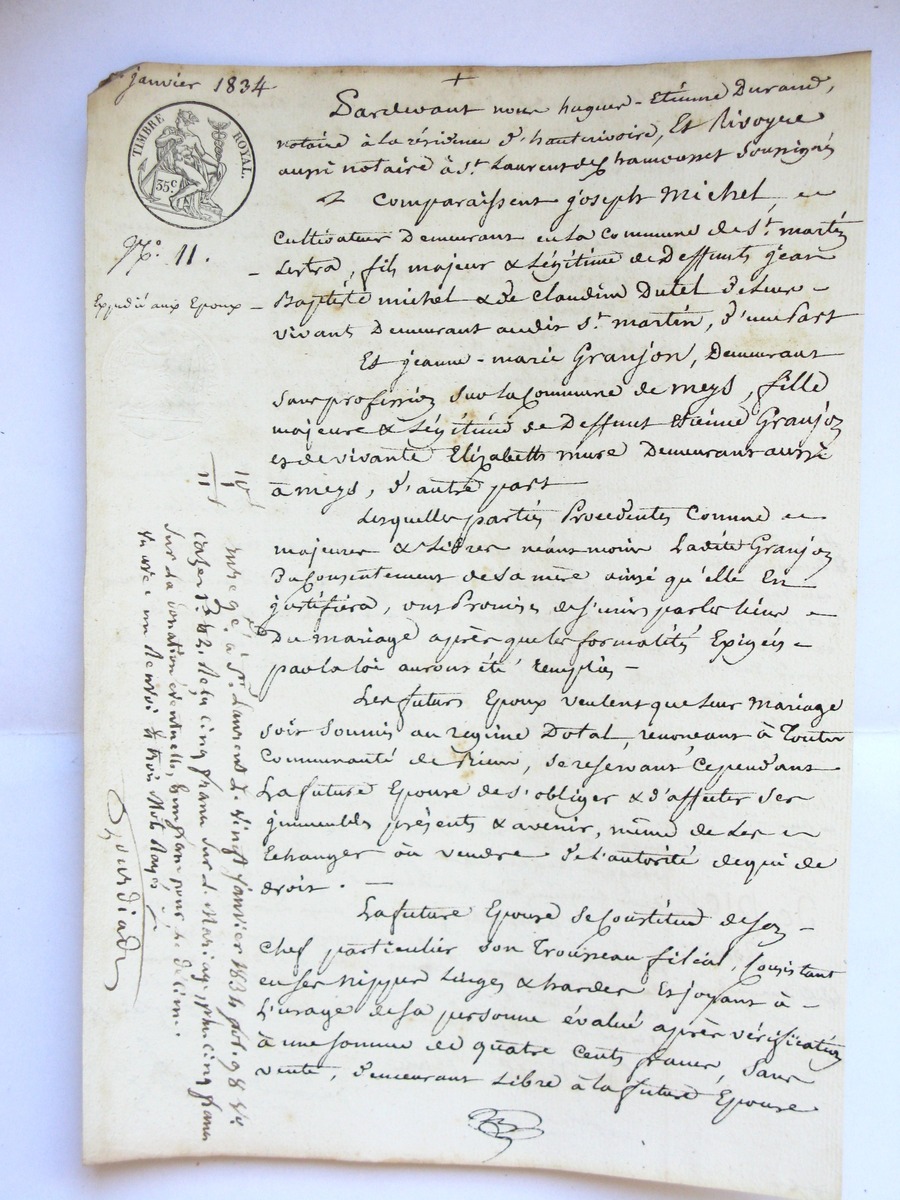 janvier 1834
TIMBRE ROYAL.
35 c.
N.° 11.
Expédié aux Epoux
Pardevant nous hugues-Etienne Durand,
notaire à la résidence d'hauterivoire, Et Rivoyre
aussi notaire à St. Laurent de Chamousset Soussignés
Comparaissent joseph Michel,
Cultivateur Demeurant en la Commune de St. martin
Lestra, fils majeur & Légitime de Deffunts jean
Baptiste michel & de Claudine Dutel De Leur
vivant Demeurant audit St. martin, D'une Part
Et jeanne-marie Granjon, Demeurant
sans profession sur la Commune de meys, fille
majeure & Légitime de Deffunt Etienne Granjon
et de vivante Elizabeth mure Demeurant aussi
à meys, D'autre part
Lesquelles parties Procédentes Comme
majeures & Libres néanmoins Ladite Granjon
Du Consentement de sa mère ainsi qu'elle En
justifiera, ont Promis de s'unir par les Liens
Du mariage après que les formalités Exigées
par la loi auront été remplies
Les futurs Epoux veulent que leur Mariage
soit soumis au régime Dotal, renonçant à Toute
Communauté de Biens, se réservant Cependant
La future Epouse de s'obliger & d'affecter ses
immeubles présents & avenir, même de Les
Echanger ou vendre De L'autorité de qui de
droit.
La future Epouse se Constitue de son
Chef particulier son Trousseau filéal, Consistant
en ses nippes Linges & hardes Et joyaux à
L'usage de sa personne évalué après vérification
à une somme de quatre Cents francs, sans
vente, Demeurant Libre à la future Epouse
10
1
11
Enregé. à St. Laurent Le vingt janvier 1834 fol. 98 Vo.
Cazes 1. & 2. Reçu cinq francs sur le Mariage, plus cinq francs
sur la donation éventuelle, & un franc pour le décime.
Vu avec un Renvoi & trois Mots Rayés